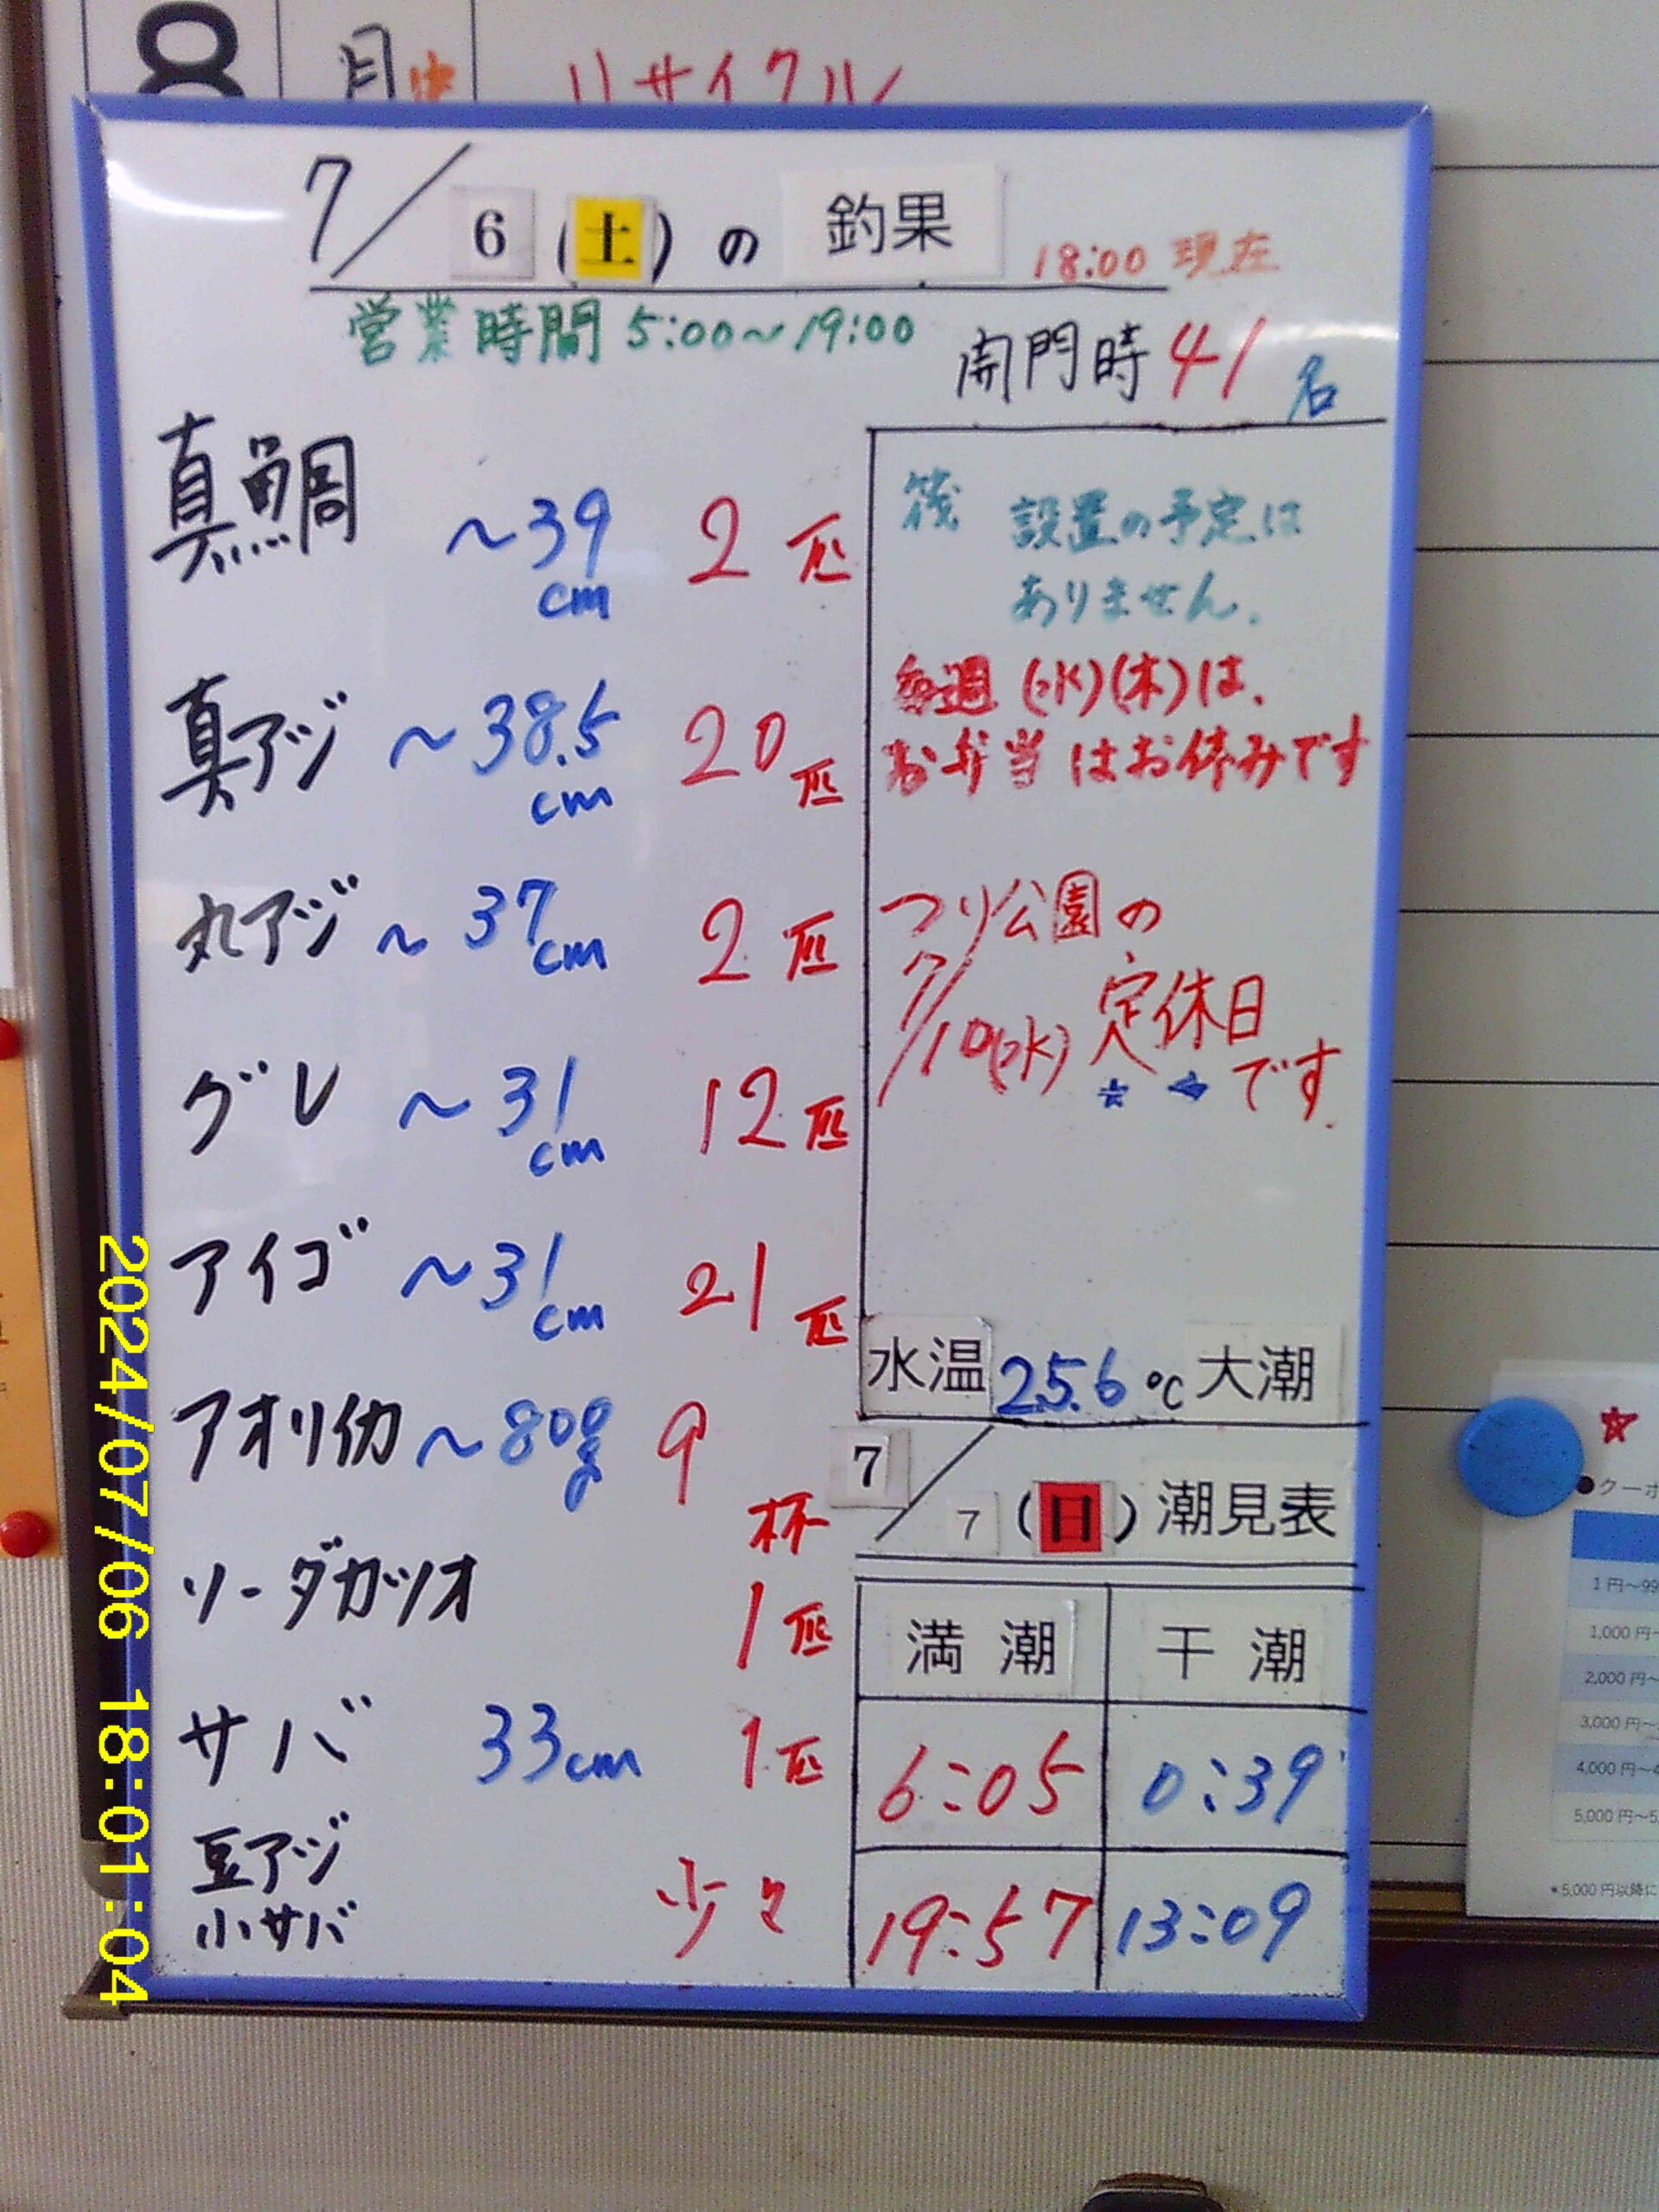 8 月 リサイクル
7/6(土)の釣果 18:00 現在
営業時間 5:00~19:00
開門時 41名
真鯛 ~39cm 2匹
真アジ ~38.5cm 20匹
丸アジ ~37cm 2匹
グレ ~31cm 12匹
アイゴ ~31cm 21匹
アオリイカ ~80g 9杯
ソーダカツオ 1匹
サバ 33cm 1匹
豆アジ
小サバ 少々
筏 設置の予定は
ありません.
毎週(水)(木)は、
お弁当はお休みです
つり公園の
7/10(水)定休日
です.
水温 25.6℃ 大潮
7/7(日)潮見表
満潮 干潮
6:05 0:39
19:57 13:09
2024/07/06 18:01:04
●クーポ
1円~99
1,000円~
2,000円~
3,000円~
4,000円~4
5,000円~5
*5,000円以降に